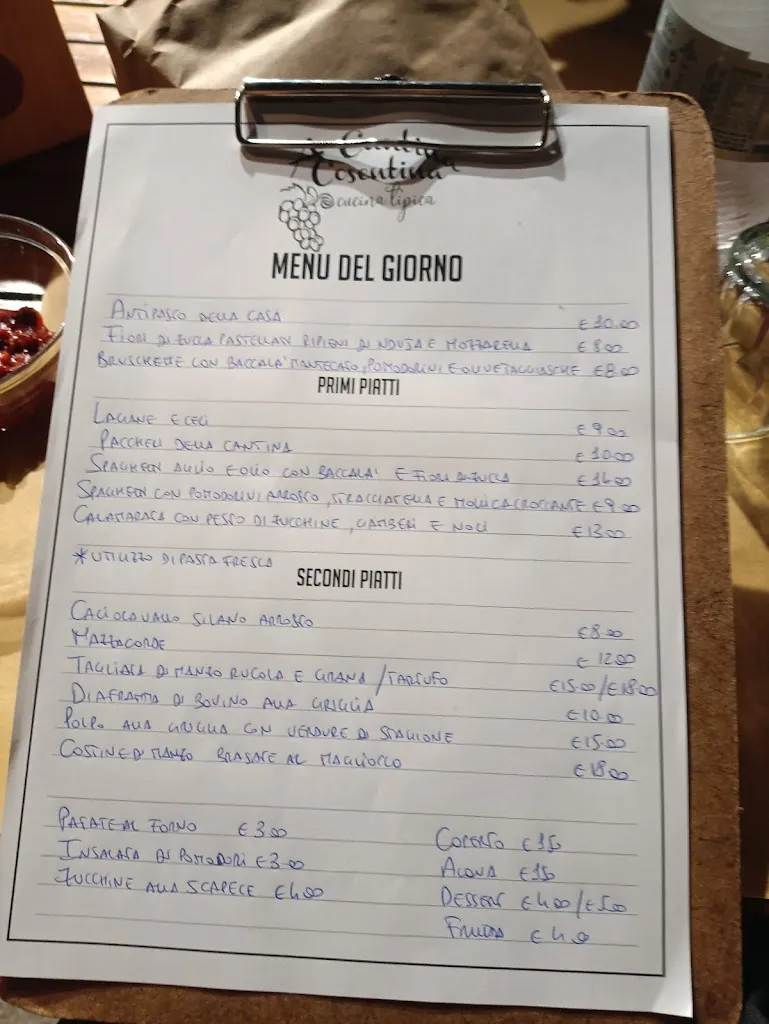 Cantina
Cosentina
@cucina tipica
MENU DEL GIORNO
ANTIPASTO DELLA CASA €10.00
FIORI DI ZUCCA PASTELLATI RIPIENI DI NDUJA E MOZZARELLA €8.00
BRUSCHETTE CON BACCALA' MANTECATO, POMODORINI E OLIVE TAGGIASCHE €8.00
PRIMI PIATTI
LAGANE E CECI €9.00
PACCHERI DELLA CANTINA €10.00
SPAGHETTI AGLIO E OLIO CON BACCALA' E FIORI DI ZUCCA €14.00
SPAGHETTI CON POMODORINI ARROSTO, STRACCIATELLA E MOLLICA CROCCANTE €9.00
CALAMARATA CON PESTO DI ZUCCHINE, GAMBERI E NOCI €13.00
*UTILIZZO DI PASTA FRESCA
SECONDI PIATTI
CACIOCAVALLO SILANO ARROSTO €8.00
MAZZACORDE €12.00
TAGLIATA DI MANZO RUCOLA E GRANA/TARTUFO €15.00/€18.00
DIAFRAMMA DI BOVINO ALLA GRIGLIA €10.00
POLPO ALLA GRIGLIA CON VERDURE DI STAGIONE €15.00
COSTINE DI MANZO BRASATE AL MAGLIOCCO €18.00
PATATE AL FORNO €3.00
INSALATA DI POMODORI €3.00
ZUCCHINE ALLA SCAPECE €4.00
COPERTO €1.5
ACQUA €1.5
DESSERT €4.00/€5.00
FRUTTA €4.0